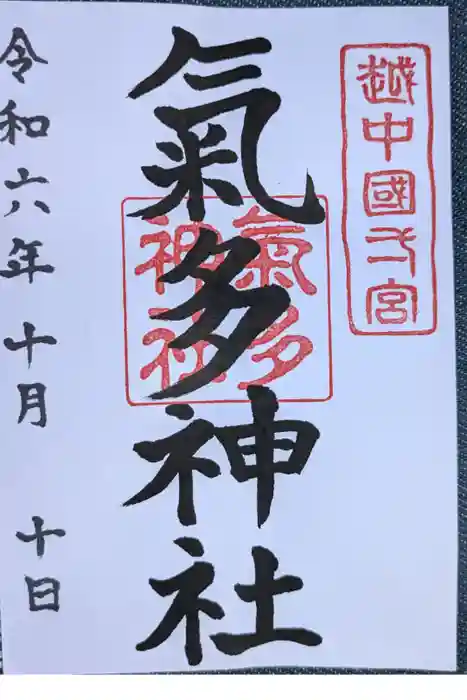 越中國一宮
氣多神社
氣多
神社
令和六年十月十日